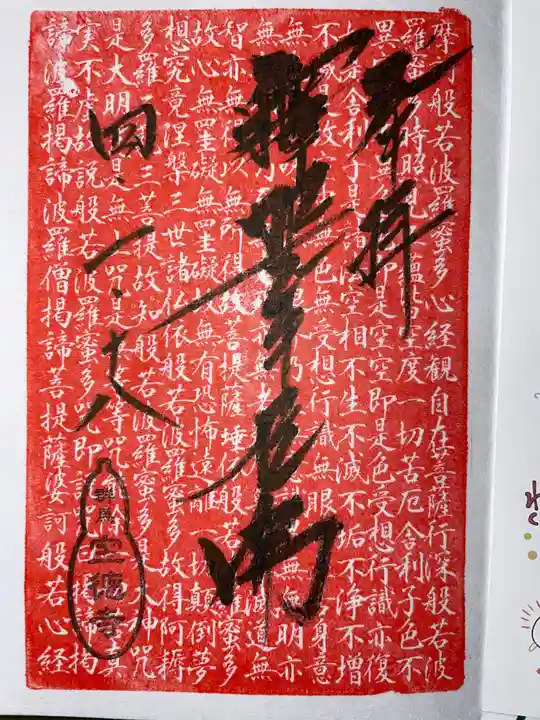 奉拝
釋迦牟尼佛
四、一、十八
群馬 聖徳寺
摩訶般若波羅蜜多心経観自在菩薩行深般若波
羅蜜多時照見五蘊皆空度一切苦厄舎利子色不
異空空不異色色即是空空即是色受想行識亦復
如是舎利子是諸法空相不生不滅不垢不浄不増
不減是故空中無色無受想行識無眼耳鼻舌身意
無色声香味触法無眼界乃至無意識界無無明亦
無無明尽乃至無老死亦無老死尽無苦集滅道無
智亦無得以無所得故菩提薩埵依般若波羅蜜多
故心無罣礙無罣礙故無有恐怖遠離一切顛倒夢
想究竟涅槃三世諸仏依般若波羅蜜多故得阿耨
多羅三藐三菩提故知般若波羅蜜多是大神咒
是大明咒是無上咒是無等等咒能除一切苦真
実不虚故説般若波羅蜜多咒即説咒曰掲諦掲
諦波羅掲諦波羅僧掲諦菩提薩婆訶般若心経